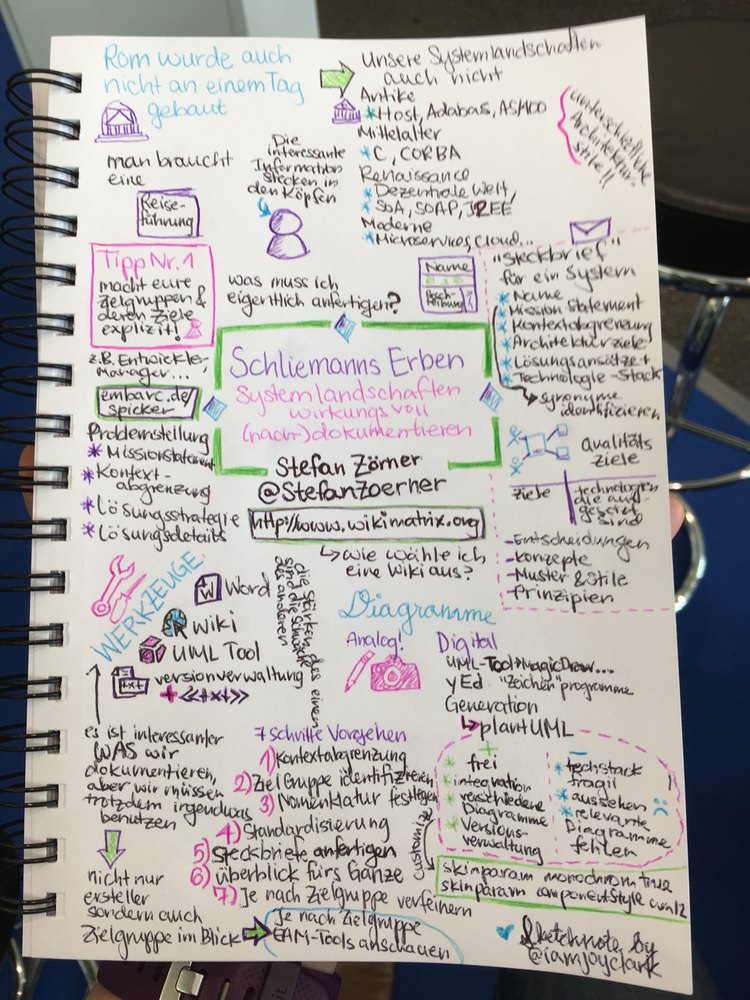 Rom wurde auch
nicht an einem Tag
gebaut
Unsere Systemlandschaften
auch nicht
Antike
* Host, Adabas, AS/400
Mittelalter
* C, CORBA
Renaissance
* Dezentrale Welt,
* SOA, SOAP, J2EE
Moderne
* Microservices, Cloud...
unterschiedliche
Architektur-
stile!!
man braucht
eine
Reise-
führung
Die
interessante
Information
stecken in
den Köpfen
Tipp Nr. 1
macht eure
Zielgruppen &
deren Ziele
explizit!
z.B. Entwickler
Manager...,
embarc.de/
spicker
was muss ich
eigentlich anfertigen?
Name
Besch-
reibung
"Steckbrief"
für ein System
* Name
* Mission Statement
* Kontextabgrenzung
* Architekturziele
* Lösungsansätze +
* Technologie-Stack
synonyme
identifizieren
Schliemanns Erben
Systemlandschaften
wirkungsvoll
(nach-)dokumentieren
Stefan Zörner
@StefanZoerner
http://www.wikimatrix.org
wie wähle ich
eine Wiki aus?
Problemstellung
* Missionstatement
* Kontext-
abgrenzung
* Lösungsstrategie
* Lösungsdetails
qualitäts
ziele
Ziele
technologien
die auf-
gesetzt
sind
- Entscheidungen
- Konzepte
- Muster & Stile
- Prinzipien
WERKZEUGE
Word
W
Wiki
UML Tool
versionverwaltung
+ <<txt>>
die Stärken des einen
sind die Schwäche
des anderen
Diagramme
Analog!
Digital
UML-Tool → MagicDraw....
yEd "Zeichen"programme
Generation
plantUML
+
* frei
* integration
* verschiedene
Diagramme
* Versions-
verwaltung
-
* techstack
fragil
* aussehen
* relevante
Diagramme
fehlen
customize
skinparam monochrom true
skinparam componentStyle uml2
es ist interessanter
WAS wir
dokumentieren,
aber wir müssen
trotzdem irgendwas
benutzen
nicht nur
ersteller
sondern auch
Zielgruppe im Blick
7 Schritte Vorgehen
1) Kontextabgrenzung
2) Zielgruppe identifizieren
3) Nomenklatur festlegen
4) Standardisierung
5) steckbriefe anfertigen
6) überblick fürs Ganze
7) Je nach Zielgruppe verfeinern
Je nach Zielgruppe
EAM-Tools anschauen
Sketchnote by
@iamjoyclark